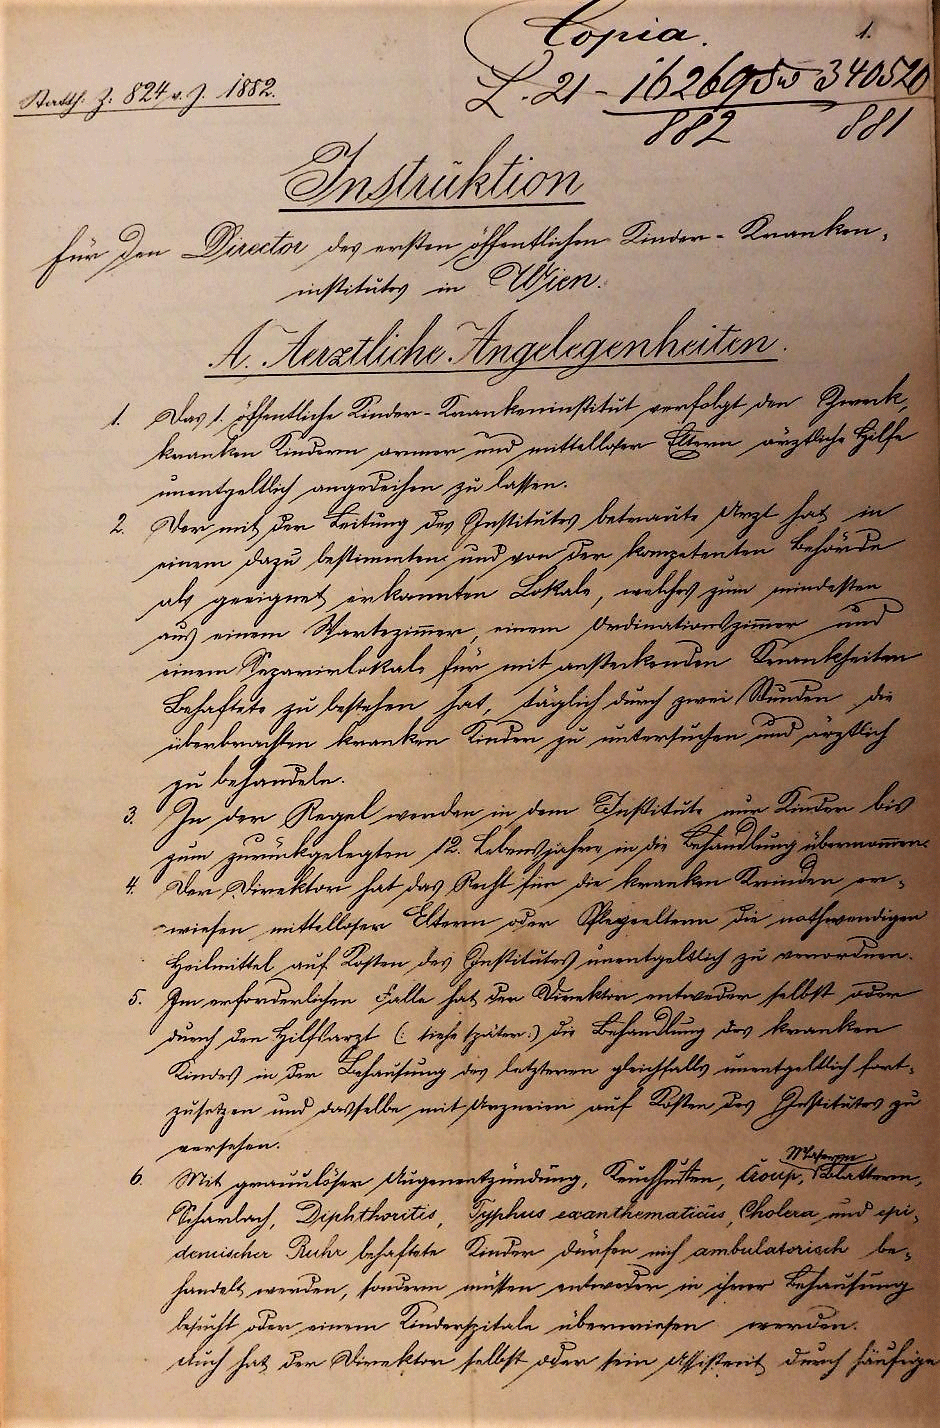 Copia.
1.
Statth. Z. 824 v. J. 1882.
L. 21 - 16269 340520
882 881
Instruktion
für den Director des ersten öffentlichen Kinder-Kranken-
institutes in Wien.
A. Aerztliche Angelegenheiten.
1. Das 1. öffentliche Kinder-Krankeninstitut verfolgt den Zweck,
kranken Kindern armer und mittelloser Eltern ärztliche Hilfe
unentgeltlich angedeihen zu lassen.
2. Der mit der Leitung des Institutes betraute Arzt hat in
einem dazu bestimmten und von der kompetenten Behörde
als geeignet erkannten Lokale, welches zum mindesten
aus einem Wartezimmer, einem Ordinationszimmer und
einem Separirlokale für mit ansteckenden Krankheiten
Behaftete zu bestehen hat, täglich durch zwei Stunden die
überbrachten kranken Kinder zu untersuchen und ärztlich
zu behandeln.
3. In der Regel werden in dem Institute nur Kinder bis
zum zurückgelegten 12. Lebensjahre in die Behandlung übernommen.
4. Der Direktor hat das Recht für die kranken Kinder er-
wiesen mittelloser Eltern oder Pflegeeltern die nothwendigen
Heilmittel auf Kosten des Institutes unentgeltlich zu verordnen.
5. Im erforderlichen Falle hat der Direktor entweder selbst oder
durch den Hilfsarzt (: siehe später :) die Behandlung des kranken
Kindes in der Behausung des letzteren gleichfalls unentgeltlich fort-
zusetzen und dasselbe mit Arzneien auf Kosten des Institutes zu
versehen.
Masern
6. Mit granulöser Augenentzündung, Keuchhusten, Croup, Blattern,
Scharlach, Diphthoritis, Typhus exanthematicus, Cholera und epi-
demischer Ruhr behaftete Kinder dürfen nich ambulatorisch be-
handelt werden, sondern müssen entweder in ihrer Behausung
besucht oder einem Kinderspitale überwiesen werden.
Auch hat der Direktor selbst oder sein Assistent durch häufige